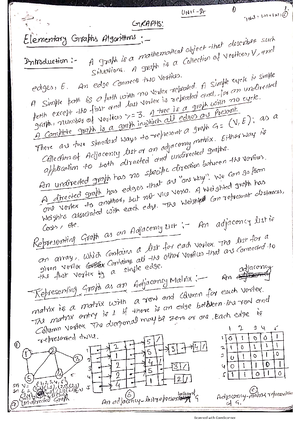 Unit-
GRAPHS
Elementary Graphs Algorithms :-
Introduction :- A graph is a mathematical object that describe such
Situations. A graph is a Collection of Vertices V, and
edges, E. An edge connects two vertices.
A Simple path is a path with no vertex repeated. A Simple cycle is simple
path except the first and last vertex is repeated and, for an undirected
graph, number of vertices >= 3. A tree is a graph with no cycle.
A Complete graph is a graph in which all edges are present.
There are two standard ways to represent a graph G = (V, E); as a
Collection of Adjacency list or an adjacency matrix. Either way is
application to both directed and undirected graphs.
An undirected graph has no specific direction between the vertices.
A directed graph has edges that are 'one way'. We can go from
one vertex to another, but not vice versa. A Weighted graph has
Weights associated with each edge. The Weights can represent distances,
Costs, etc.
Representing Graph as an Adjacency List :- An adjacency list is
an array, which contains a list for each vertex. The list for a
given vertex contains all the other vertices that are connected to
the first vertex by a single edge.
Representing Graph as an Adjacency Matrix :- An adjacency
matrix is a matrix with a row and column for each vertex.
The matrix entry is 1 if there is an edge between the row and
column vertex. The diagonal may be zero or one. Each edge is
represented twice.
1 2 3 4 5
Undirected Graph
An adjacency-list representation of G.
Adjacency-matrix representation
of G.
Scanned with CamScanner